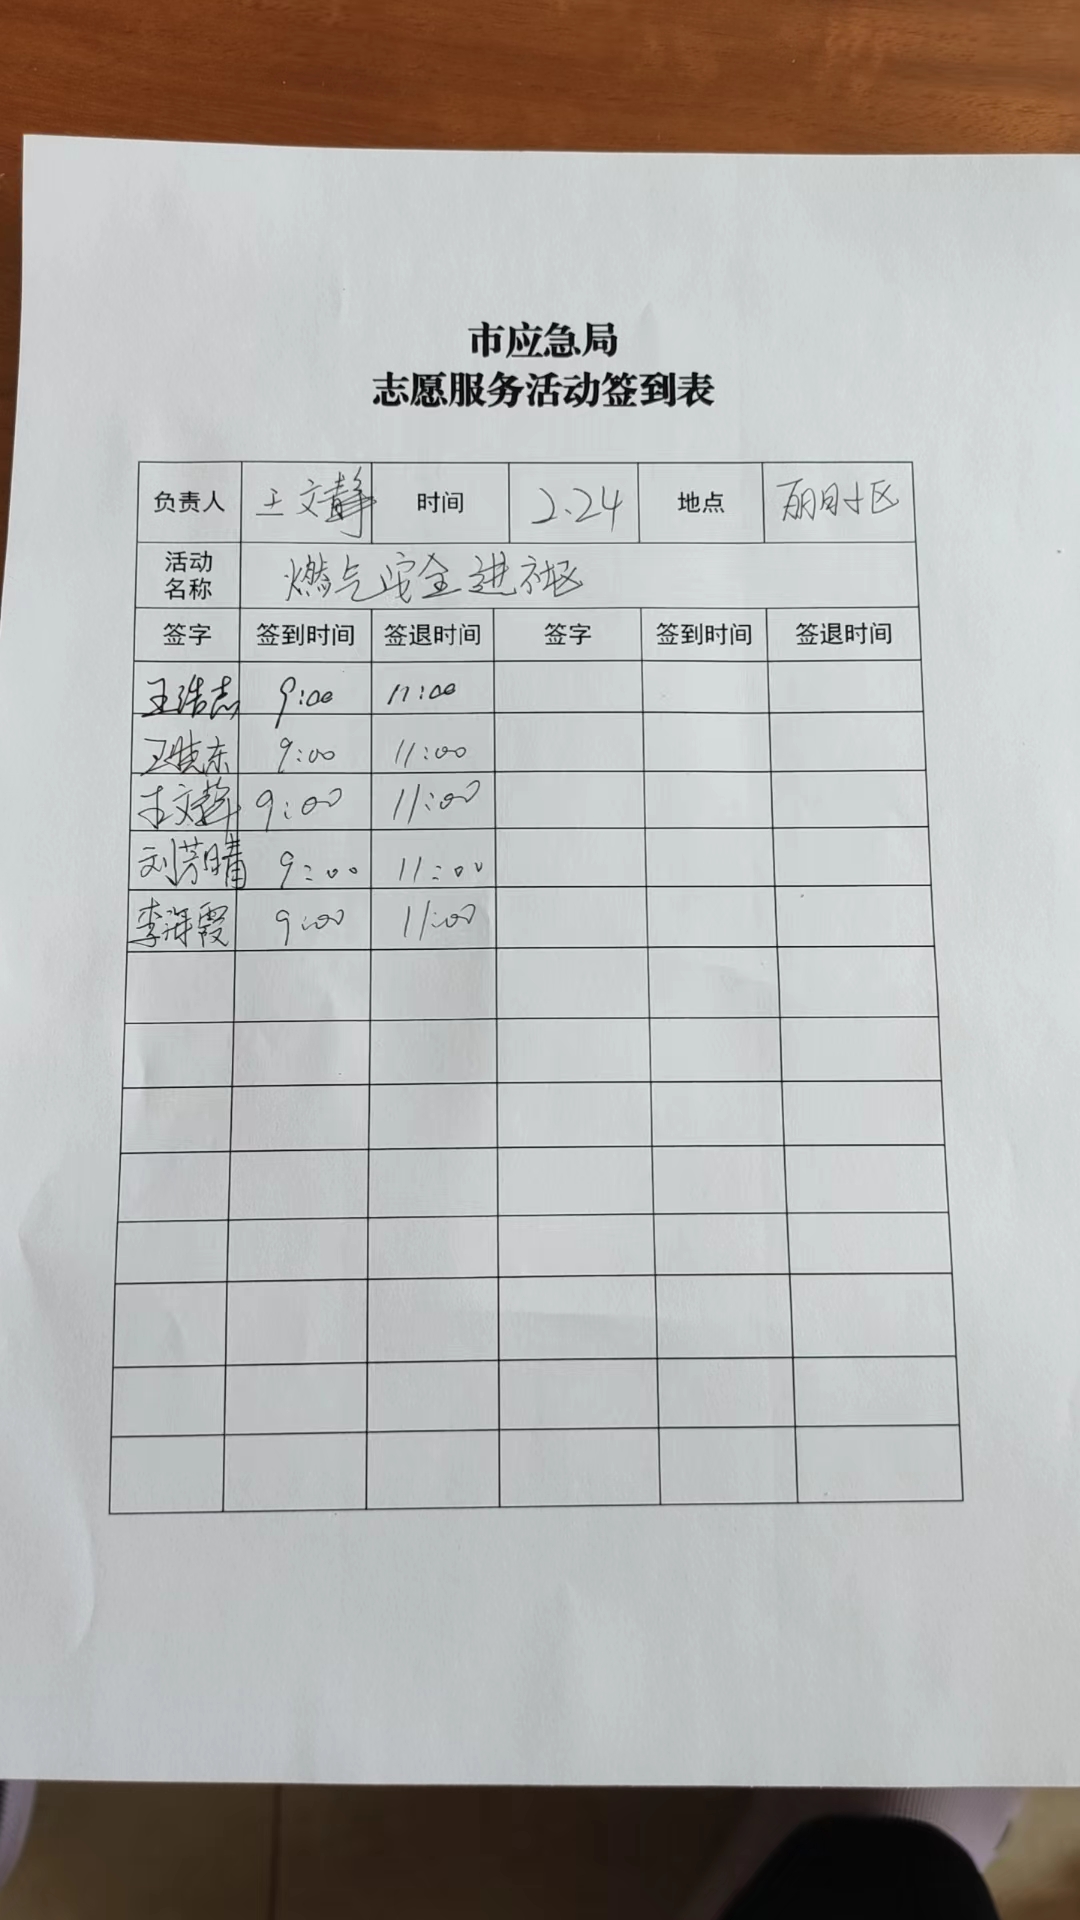 市应急局
志愿服务活动签到表
负责人 王文静 时间 2.24 地点 丽日小区
活动名称 燃气安全进社区
签字 签到时间 签退时间 签字 签到时间 签退时间
王浩志 9:00 11:00
王晓东 9:00 11:00
王文静 9:00 11:00
刘芳晴 9:00 11:00
李海霞 9:00 11:00